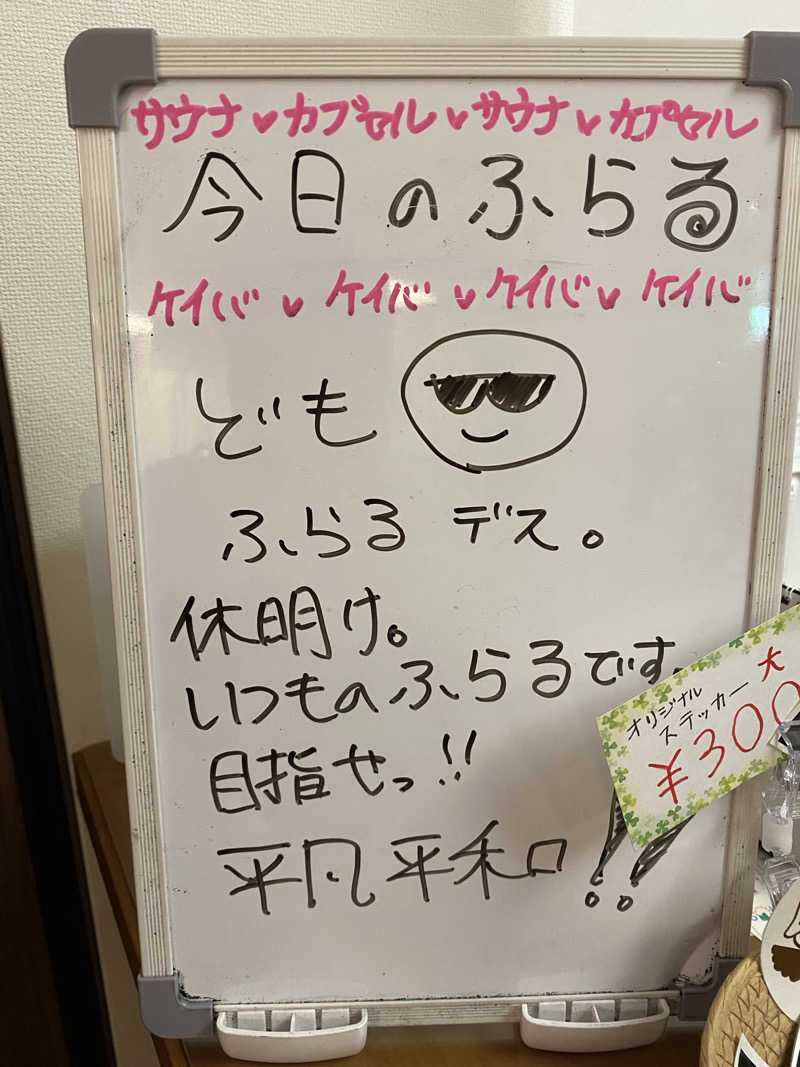 サウナ♥カプセル♥サウナ♥カプセル
今日のふらる
ケイバ♥ケイバ♥ケイバ♥ケイバ
ども
ふらるデス。
休明け。
いつものふらるです。
目指せっ!!
平凡平和!!
オリジナル
ステッカー大
¥300